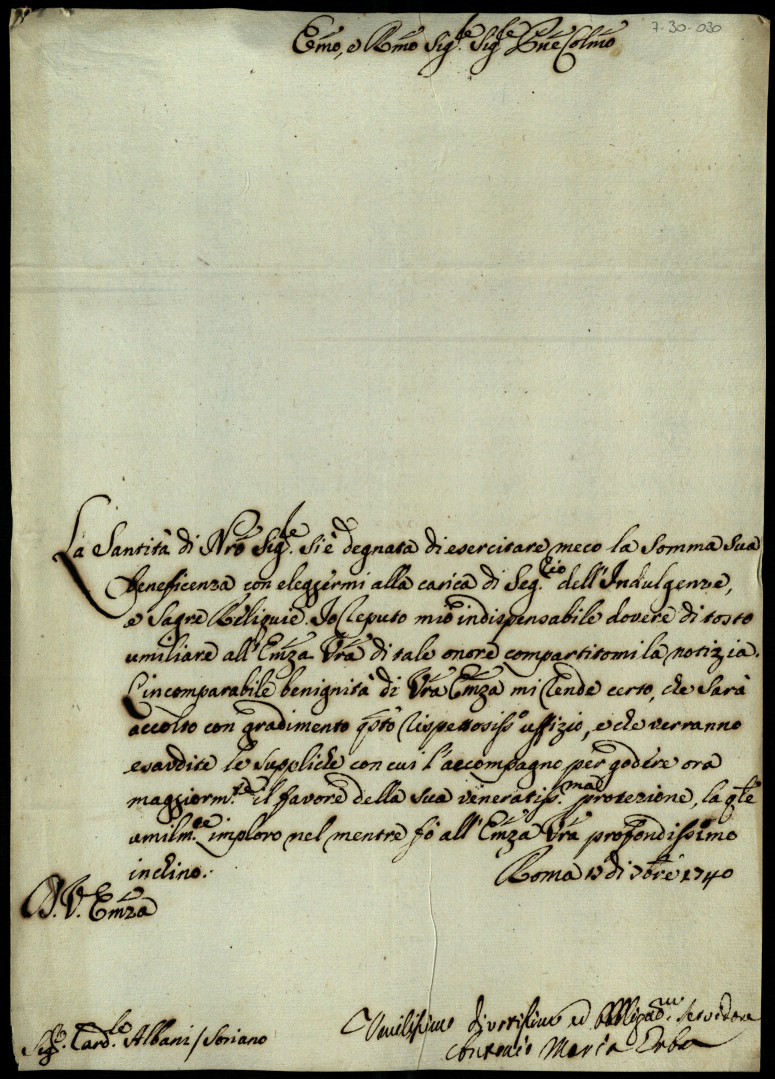 7-30-030
Emo, e Rmo Sig.re Sig.re Pne Colmo
La Santità di Nro Sig.re si è degnata di esercitare meco la somma sua
beneficenza con eleggermi alla carica di Seg.rio dell'Indulgenze,
e Sagre Reliquie. Io reputo mio indispensabile dovere di tosto
umiliare all'Emza Vra di tale onore compartitomi la notizia.
L'incomparabile benignità di Vra Emza mi rende certo, che sarà
accolto con gradimento qsto rispettosiss.o uffizio, e che verranno
esaudite le suppliche con cui l'accompagno per godere ora
maggiorm.te il favore della sua veneratiss.ma protezione, la qle
umilm.te imploro nel mentre fò all'Emza Vra profondissimo
inchino.
Roma di 7bre 1740
D. V. Emza
Sig.r Card.le Albani / Soriano
Umilissimo divotissimo ed obbligad.mo Servidore
Antonio Maria Erba